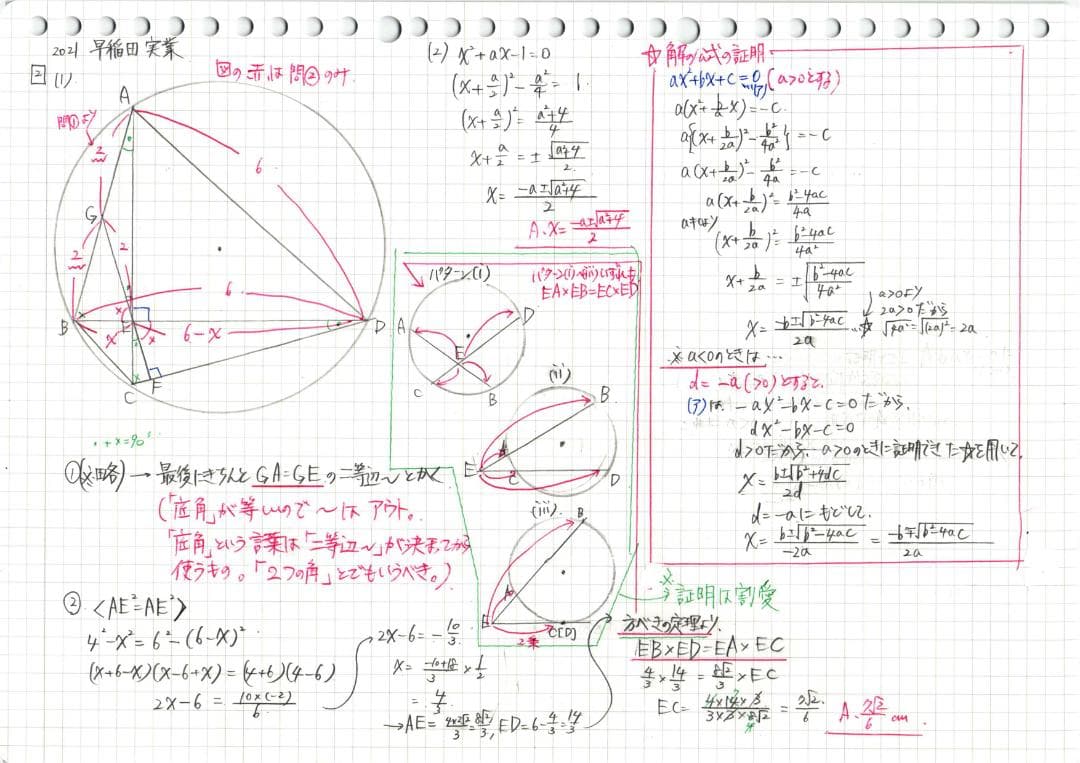 2021 早稲田実業
2 (1)
図の赤は問②のみ.
A
問①より
2
6
G
2
2
6
B
x
E
x
6-x
D
C
F
・+×=90°
①(※略) → 最後にきちんとGA=GEの二等辺～とかく
(「底角」が等しいので～はアウト。
「底角」という言葉は「二等辺～」が決まってから
使うもの。「2つの角」とでもいうべき。)
② <AE²=AE²>
4²-x²=6²-(6-x)²
(x+6-x)(x-6+x)=(4+6)(4-6)
2x-6=10×(-2)/6
2x-6=-10/3
x=-10+18/3×1/2
=4/3
→AE=4×2√2/3=8√2/3, ED=6-4/3=14/3
(2) x²+ax-1=0
(x+a/2)²-a²/4=1
(x+a/2)²=a²+4/4
x+a/2=±√a²+4/2
x=-a±√a²+4/2
A. x=-a±√a²+4/2
パターン(i)
パターン(i)～(iii)いずれも
EA×EB=EC×ED
A
D
E
C
B
(ii)
B
A
E
C
D
(iii)
B
A
E
C[D]
2乗
※証明は割愛
方べきの定理より,
EB×ED=EA×EC
4/3×14/3=8√2/3×EC
EC=4×14×3/3×3×8√2=7√2/6
A. 7√2/6 cm
☆解の公式の証明
ax²+bx+c=0 (a>0とする)
(ア)
a(x²+b/a x)=-c
a{(x+b/2a)²-b²/4a²}=-c
a(x+b/2a)²-b²/4a=-c
a(x+b/2a)²=b²-4ac/4a
a≠0より
(x+b/2a)²=b²-4ac/4a²
x+b/2a=±√b²-4ac/4a²
a>0より
2a>0だから
√4a²=√(2a)²=2a
x=-b±√b²-4ac/2a …☆
※a<0のときは…
d=-a(>0)とすると,
(ア)は -ax²-bx-c=0だから,
dx²-bx-c=0
d>0だから, a>0のときに証明できた☆を用いて,
x=b±√b²+4dc/2d
d=-aにもどして,
x=b±√b²-4ac/-2a=-b∓√b²-4ac/2a